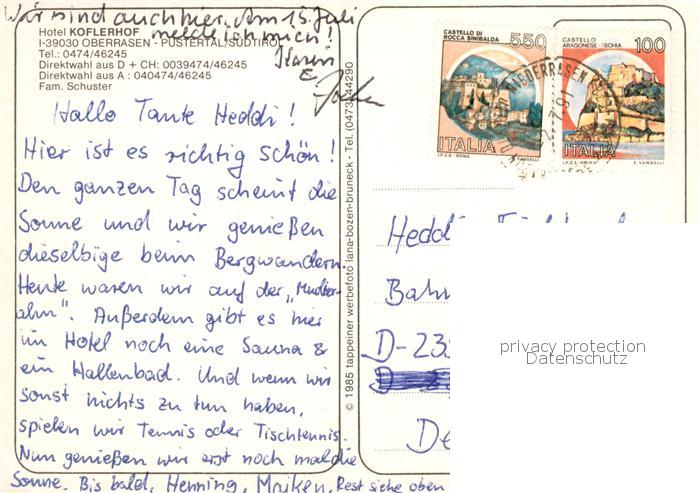 Wir sind auch hier. Am 15. Juli
melde ich mich!
Karin
&
Hotel KOFLERHOF
I-39030 OBERRASEN - PUSTERTAL/SÜDTIROL
Tel.: 0474/46245
Direktwahl aus D + CH: 0039474/46245
Direktwahl aus A : 040474/46245
Fam. Schuster
Hallo Tante Heddi!
Hier ist es richtig schön!
Den ganzen Tag scheint die
Sonne und wir genießen
dieselbige beim Bergwandern.
Heute waren wir auf der
alm". Außerdem gibt es hier
im Hotel noch eine Sauna &
ein Hallenbad. Und wenn wir
sonst nichts zu tun haben,
spielen wir Tennis oder Tischtennis.
Nun genießen wir erst noch mal die
Sonne. Bis bald, Henning, Maiken, Rest siehe oben
© 1985 tappeiner werbefoto lana-bozen-bruneck - Tel. (0473) 44290
CASTELLO DI
ROCCA SINIBALDA
550
ITALIA
I.P.Z.S.-ROMA E. VANGELLI
CASTELLO
ARAGONESE - ISCHIA
100
ITALIA
I.P.Z.S.-ROMA E. VANGELLI
NIEDERRASEN
Heddi
Bahn
D-23
De
privacy protection
Datenschutz